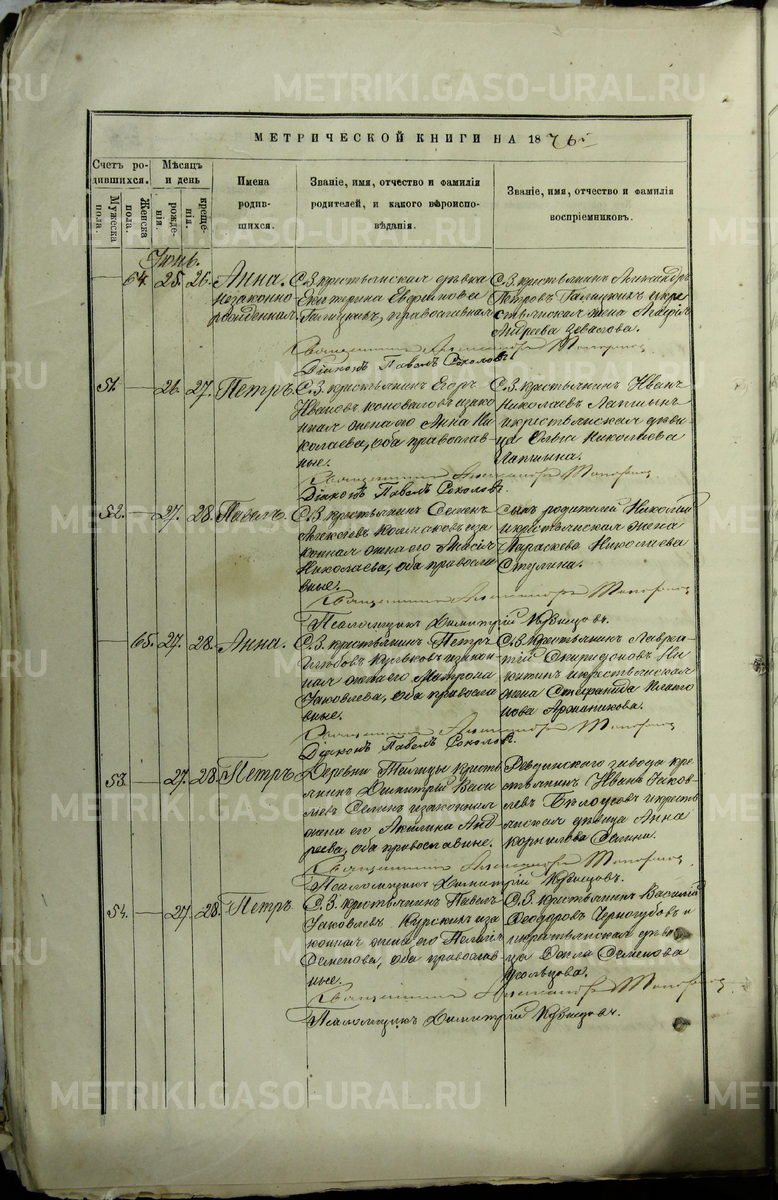 METRIKI.GASO-URAL.RU
МЕТРИЧЕСКОЙ КНИГИ НА 1876 г.
Счетъ ро-
дившихся.
Мужеска
пола.
Женска
пола.
Мѣсяцъ
и день
рожде-
нія.
креще-
нія.
Имена
родив-
шихся.
Званіе, имя, отчество и фамилія
родителей, и какого вѣроиспо-
вѣданія.
Званіе, имя, отчество и фамилія
воспріемниковъ.
Іюнь.
64. 25. 26. Анна.
незаконно
рожденная.
С. З. крестьянская дѣвка
Екатерина Евфимова
Галицкихъ, православная.
С. З. крестьянинъ Александръ
Петровъ Галицкихъ и кре
стьянская жена Марія
Андреева
Священникъ Александръ
Діаконъ Павелъ Соколовъ.
51. 26. 27. Петръ.
С. З. крестьянинъ Егоръ
Ивановъ Коноваловъ и зако
нная жена его Анна Ни
колаева, оба православ
ные.
С. З. крестьянинъ Иванъ
Николаевъ Лапшинъ
и крестьянская дѣви
ца Ольга Николаева
Лапшина.
Священникъ Александръ
Діаконъ Павелъ Соколовъ.
52. 27. 28. Павелъ.
С. З. крестьянинъ Семенъ
Алексѣевъ и за
конная жена его
Николаева, оба правосла
вные.
Сынъ родителей Николай
и крестьянская жена
Параскева Николаева
Стулина.
Священникъ Александръ
Псаломщикъ Димитрій Кузнецовъ.
65. 27. 28. Анна.
С. З. крестьянинъ Петръ
Глѣбовъ и закон
ная жена его Матрона
Іаковлева, оба правосла
вные.
С. З. крестьянинъ Лаврен
тій Спиридоновъ Ни
китинъ и крестьянская
жена Стефанида Плато
нова
Священникъ Александръ
Діаконъ Павелъ Соколовъ.
53. 27. 28. Петръ.
Деревни Талицы кресть
янинъ Димитрій Васи
льевъ Селинъ и законная
жена его Акилина Анд
реева, оба православные.
Ревдинскаго завода кре
стьянинъ Иванъ Іаков
левъ Бѣлоусовъ и кресть
янская дѣвица Анна
Корнилова Селина.
Священникъ Александръ
Псаломщикъ Димитрій Кузнецовъ.
54. 27. 28. Петръ.
С. З. крестьянинъ Павелъ
Іаковлевъ Курскихъ и за
конная жена его Пелагія
Семенова, оба православ
ные.
С. З. крестьянинъ Василій
Феодоровъ Черногубовъ и
крестьянская дѣви
ца Ѳекла Семенова
Усольцова.
Священникъ Александръ
Псаломщикъ Димитрій Кузнецовъ.